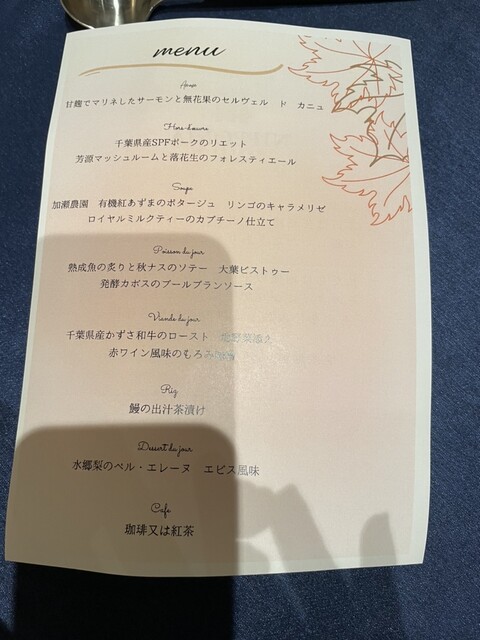 menu
甘麹でマリネしたサーモンと無花果のセルヴェル ド カニュ
Hors-d'œuvre
千葉県産SPFポークのリエット
芳源マッシュルームと落花生のフォレスティエール
Soupe
加瀬農園 有機紅あずまのポタージュ リンゴのキャラメリゼ
ロイヤルミルクティーのカプチーノ仕立て
Poisson du jour
熟成魚の炙りと秋ナスのソテー 大葉ピストゥー
発酵カボスのブールブランソース
Viande du jour
千葉県産かずさ和牛のロースト 添え
赤ワイン風味のもろみ
Riz
鰻の出汁茶漬け
Dessert du jour
水郷梨のベル・エレーヌ エピス風味
Cafe
珈琲又は紅茶